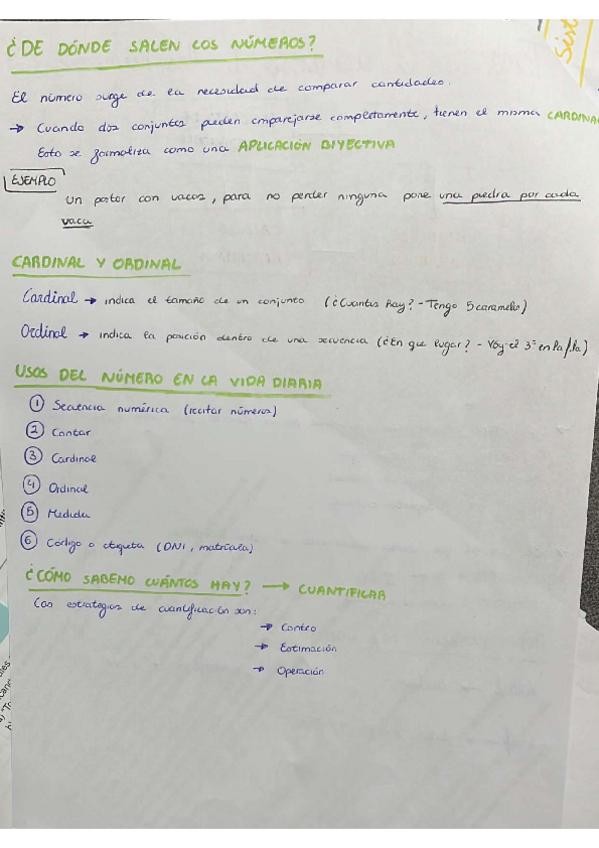 ¿DE DÓNDE SALEN LOS NÚMEROS?
El número surge de la necesidad de comparar cantidades.
→ Cuando dos conjuntos pueden emparejarse completamente, tienen el misma CARDINA
Esto se formatiza como una APLICACIÓN BIYECTIVA
EJEMPLO
Un pastor con vacas, para no perder ninguna pone una piedra por cada
vaca
CARDINAL Y ORDINAL
Cardinal → indica el tamaño de un conjunto (¿Cuantos hay? - Tengo 5 caramelos)
Ordinal → indica la posición dentro de una secuencia (¿En que lugar? - Voy el 3º en la fila)
USOS DEL NÚMERO EN LA VIDA DIARIA
① Secuencia numérica (recitar números)
② Contar
③ Cardinal
④ Ordinal
⑤ Medida
⑥ Código o etiqueta (DNI, matrícula)
¿CÓMO SABEMO CUÁNTOS HAY? → CUANTIFICAR
Las estrategias de cuantificación son:
→ Conteo
→ Estimación
→ Operación